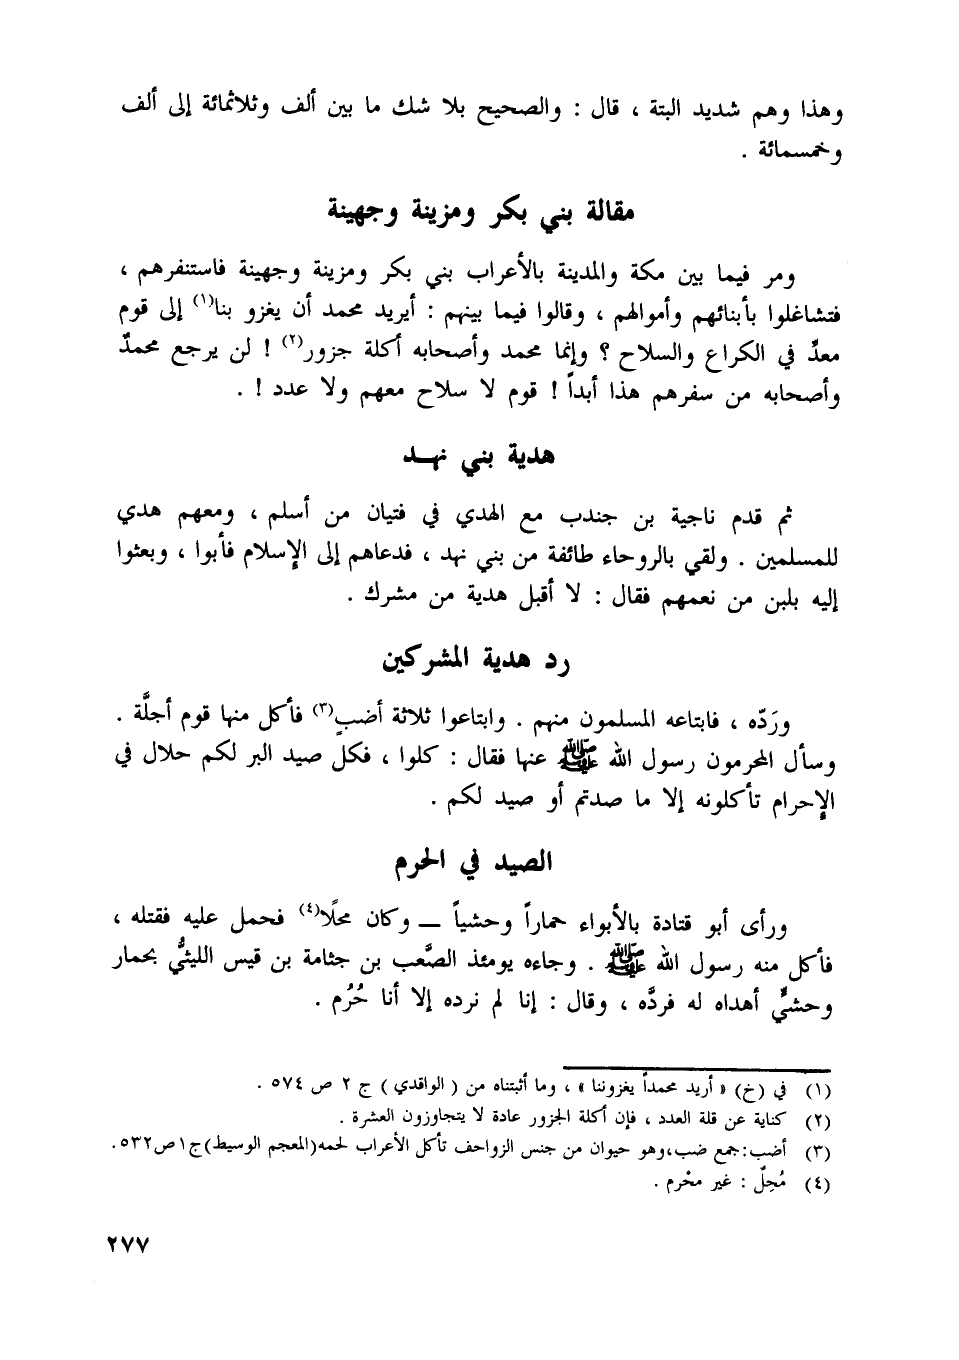 وهذا وهم شديد البتة ، قال : والصحيح بلا شك ما بين ألف وثلاثمائة إلى ألف
وخمسمائة .
مقالة بني بكر ومزينة وجهينة
ومر فيما بين مكة والمدينة بالأعراب بني بكر ومزينة وجهينة فاستنفرهم ،
فتشاغلوا بأبنائهم وأموالهم ، وقالوا فيما بينهم : أيريد محمد أن يغزو بنا(١) إلى قوم
معدٍّ في الكراع والسلاح ؟ وإنما محمد وأصحابه أكلة جزور(٢) ! لن يرجع محمدٌ
وأصحابه من سفرهم هذا أبداً ! قوم لا سلاح معهم ولا عدد ! .
هدية بني نهـد
ثم قدم ناجية بن جندب مع الهدي في فتيان من أسلم ، ومعهم هدي
للمسلمين . ولقي بالروحاء طائفة من بني نهد ، فدعاهم إلى الإسلام فأبوا ، وبعثوا
إليه بلبن من نعمهم فقال : لا أقبل هدية من مشرك .
رد هدية المشركين
ورَدّه ، فابتاعه المسلمون منهم . وابتاعوا ثلاثة أضبٍ(٣) فأكل منها قوم أجلَّة .
وسأل المحرمون رسول الله ﷺ عنها فقال : كلوا ، فكل صيد البر لكم حلال في
الإحرام تأكلونه إلا ما صدتم أو صيد لكم .
الصيد في الحرم
ورأى أبو قتادة بالأبواء حماراً وحشياً ــ وكان محلًا(٤) فحمل عليه فقتله ،
فأكل منه رسول الله ﷺ . وجاءه يومئذ الصَّعب بن جثامة بن قيس الليثيُّ بحمار
وحشيٍّ أهداه له فردَّه ، وقال : إنا لم نرده إلا أنا حُرُم .
(١) في (خ) « أريد محمداً يغزوننا » ، وما أثبتناه من ( الواقدي ) ج ٢ ص ٥٧٤ .
(٢) كناية عن قلة العدد ، فإن أكلة الجزور عادة لا يتجاوزون العشرة .
(٣) أضب:جمع ضب،وهو حيوان من جنس الزواحف تأكل الأعراب لحمه(المعجم الوسيط)ج١ص٥٣٢.
(٤) مُحِلٌ : غير محْرم .
٢٧٧